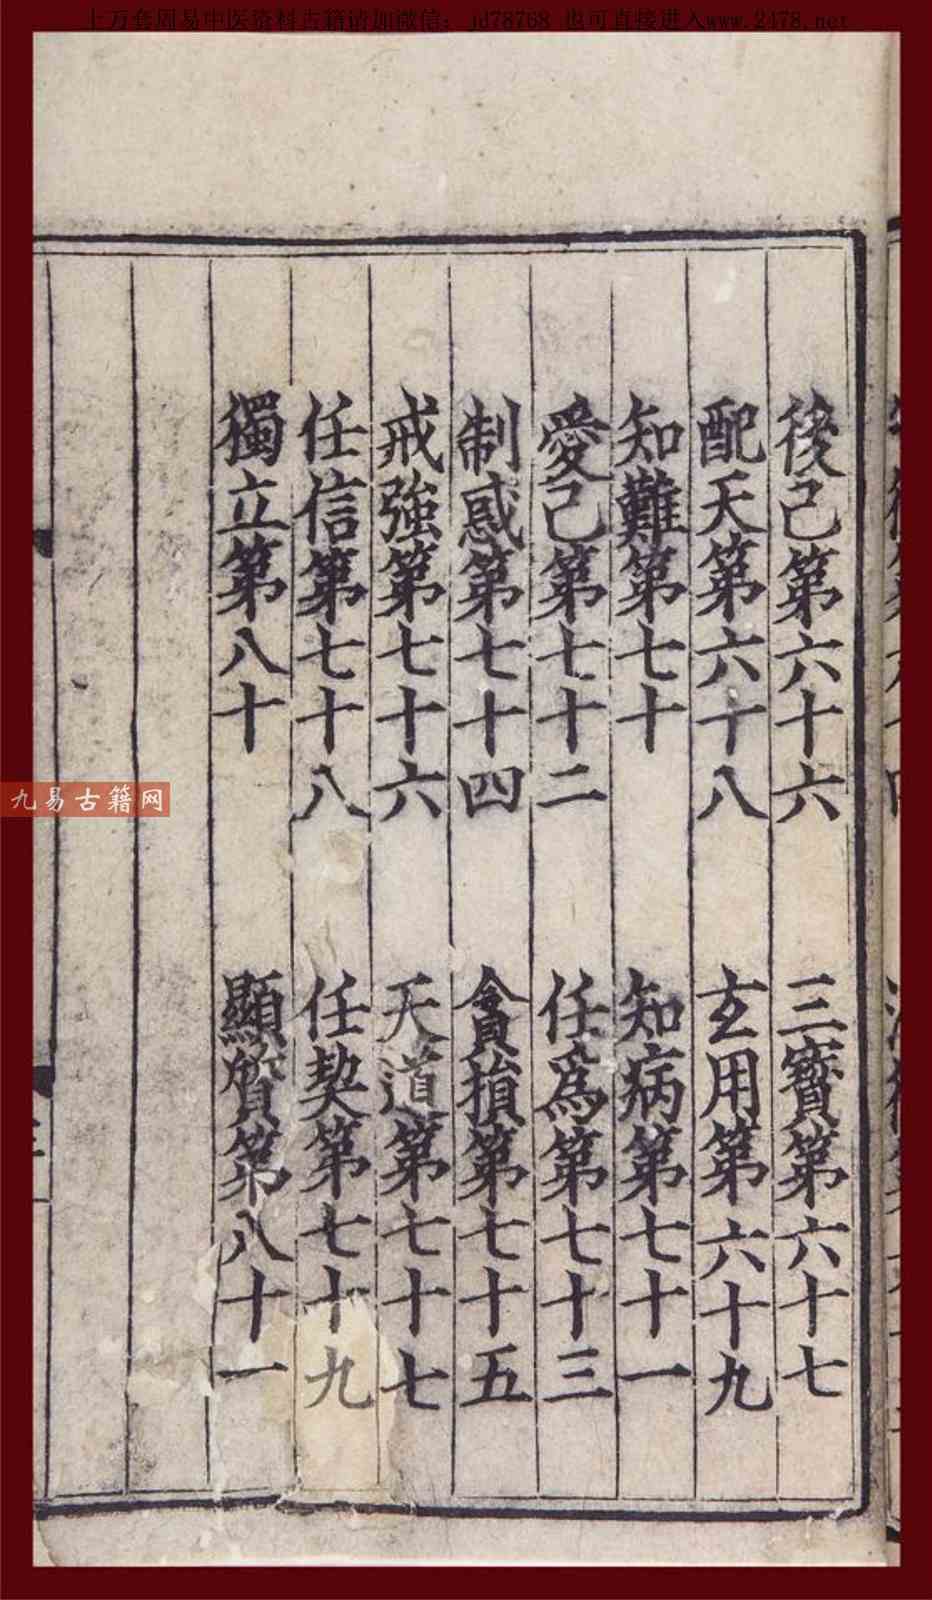 上万套周易中医资料古籍请加微信：jd78768 也可直接进入www.2478.net
後己第六十六 三寳第六十七
配天第六十八 玄用第六十九
知難第七十 知病第七十一
愛己第七十二 任爲第七十三
制惑第七十四 貪損第七十五
戒強第七十六 天道第七十七
任信第七十八 任契第七十九
獨立第八十 顯質第八十一
九易古籍网